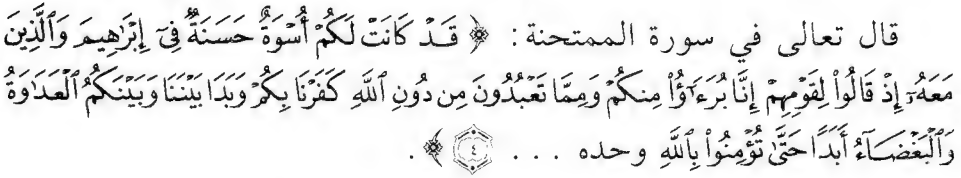 قال تعالى في سورة الممتحنة : ﴿ قَدْ كَانَتْ لَكُمْ أُسْوَةٌ حَسَنَةٌ فِىٓ إِبْرَٰهِيمَ وَٱلَّذِينَ
مَعَهُۥٓ إِذْ قَالُوا۟ لِقَوْمِهِمْ إِنَّا بُرَءَٰٓؤُا۟ مِنكُمْ وَمِمَّا تَعْبُدُونَ مِن دُونِ ٱللَّهِ كَفَرْنَا بِكُمْ وَبَدَا بَيْنَنَا وَبَيْنَكُمُ ٱلْعَدَٰوَةُ
وَٱلْبَغْضَآءُ أَبَدًا حَتَّىٰ تُؤْمِنُوا۟ بِٱللَّهِ وحده . . . ٤ ﴾ .